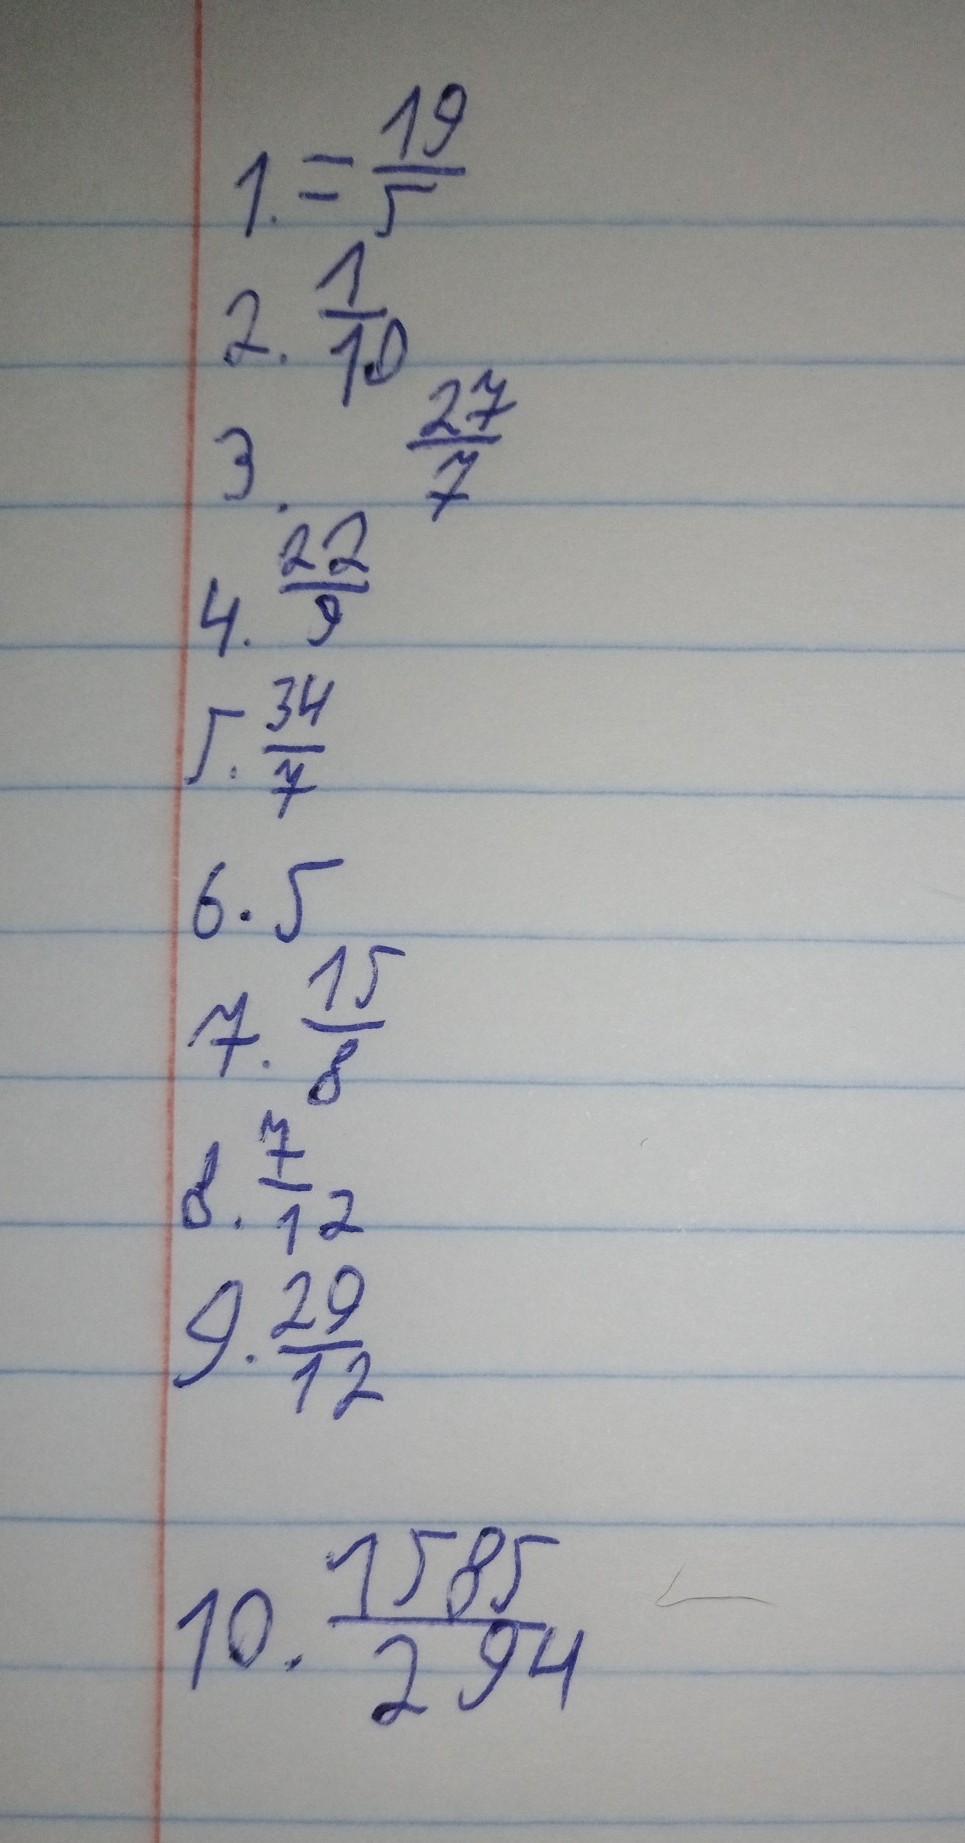 1. = 19/5
2. 1/10
3. 27/7
4. 22/9
5. 34/7
6. 5
7. 15/8
8. 7/12
9. 29/12
10. 1585/294